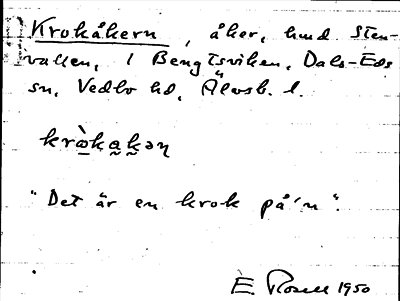 Krokåkern, åker, hmd Sten-
vallen, 1 Bengtsviken, Dals-Eds
sn, Vedbo hd, Älvsb. l.
kròkakəṇ
"Det är en krok på'n".
E. Rosell 1950